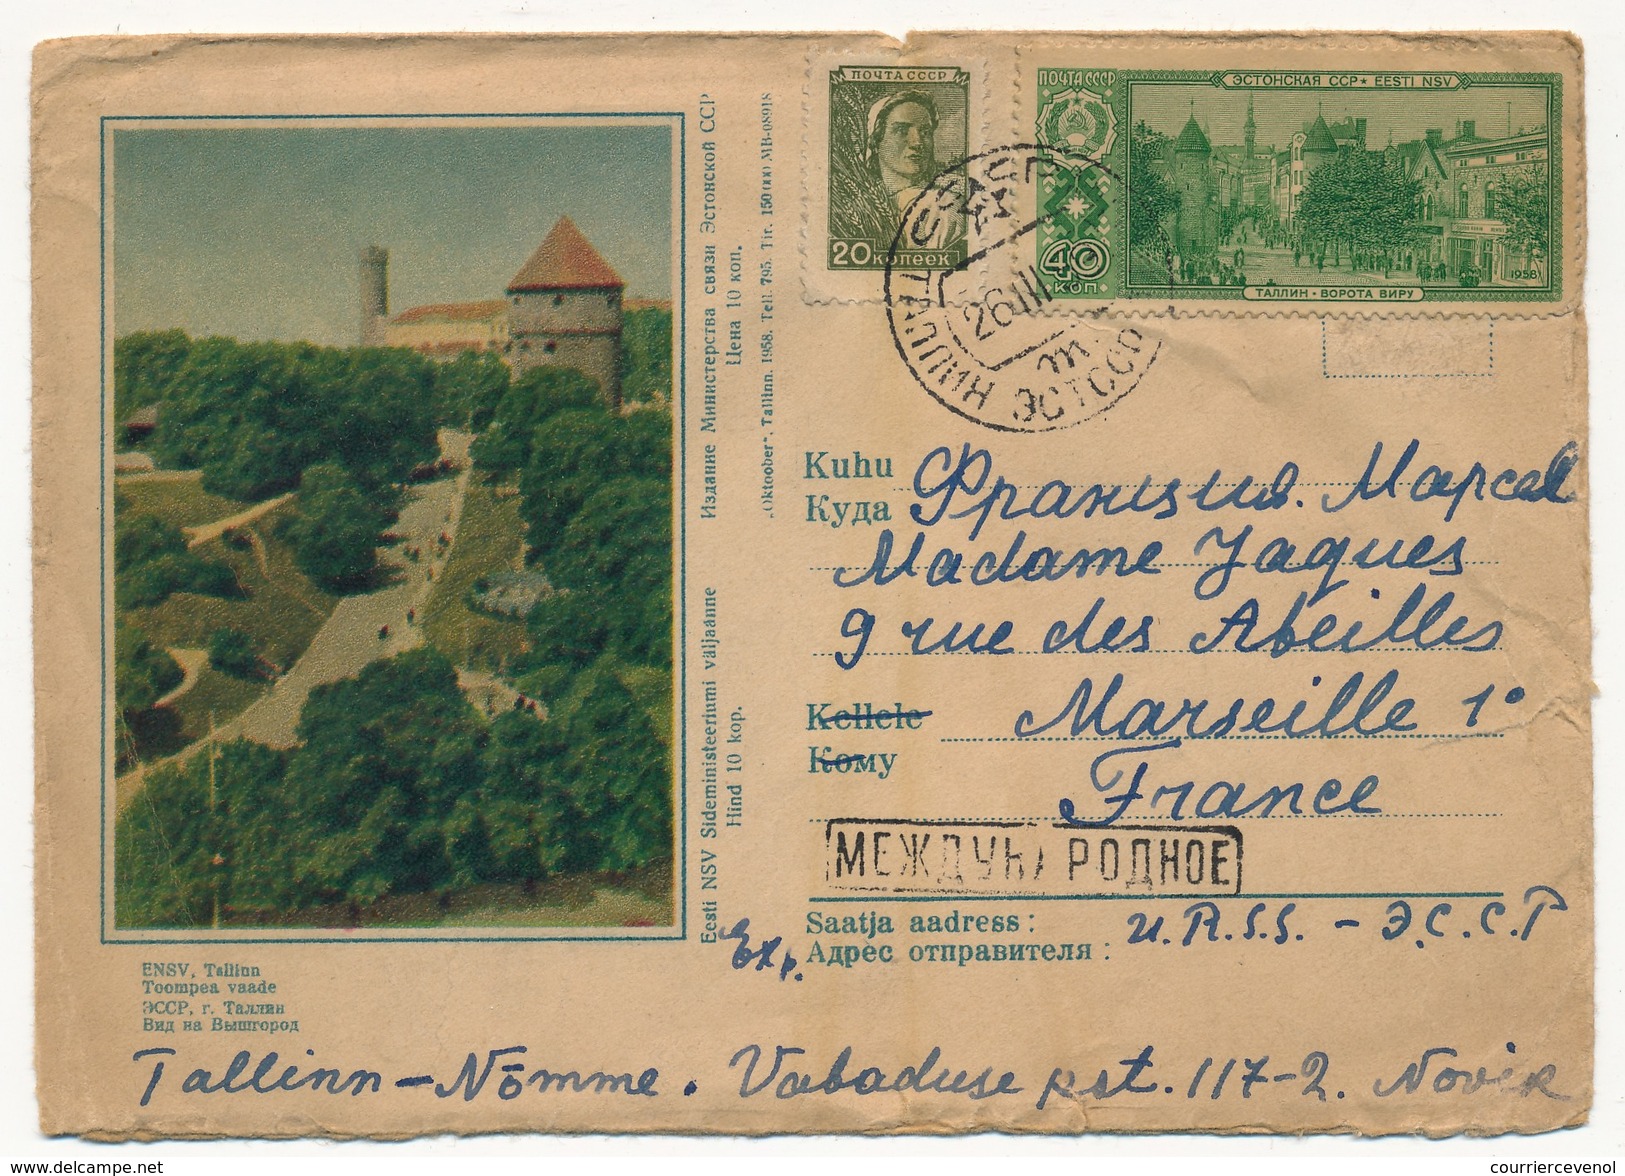 ПОЧТА СССР
20 копеек
ПОЧТА СССР
ЭСТОНСКАЯ ССР ★ EESTI NSV
40
КОП.
1958
ТАЛЛИН · ВОРОТА ВИРУ
ТАЛЛИН ЭСТ ССР
26 III
Издание Министерства связи Эстонской ССР
Цена 10 коп.
„Oktoober“, Tallinn. 1958. Tell. 795. Tir. 150 000 MB-08918
Eesti NSV Sideministeeriumi väljaanne
Hind 10 kop.
Kuhu
Куда
Франция. Марсел
Madame Jaques
9 rue des Abeilles
Kellele
Кому
Marseille 1°
France
МЕЖДУНАРОДНОЕ
Saatja aadress:
Адрес отправителя:
U.R.S.S. - Э.С.С.Р
Exp.
ENSV, Tallinn
Toompea vaade
ЭССР, г. Таллин
Вид на Вышгород
Tallinn - Nõmme. Vabaduse pst. 117-2. Novik
courriercevenol
www.delcampe.net